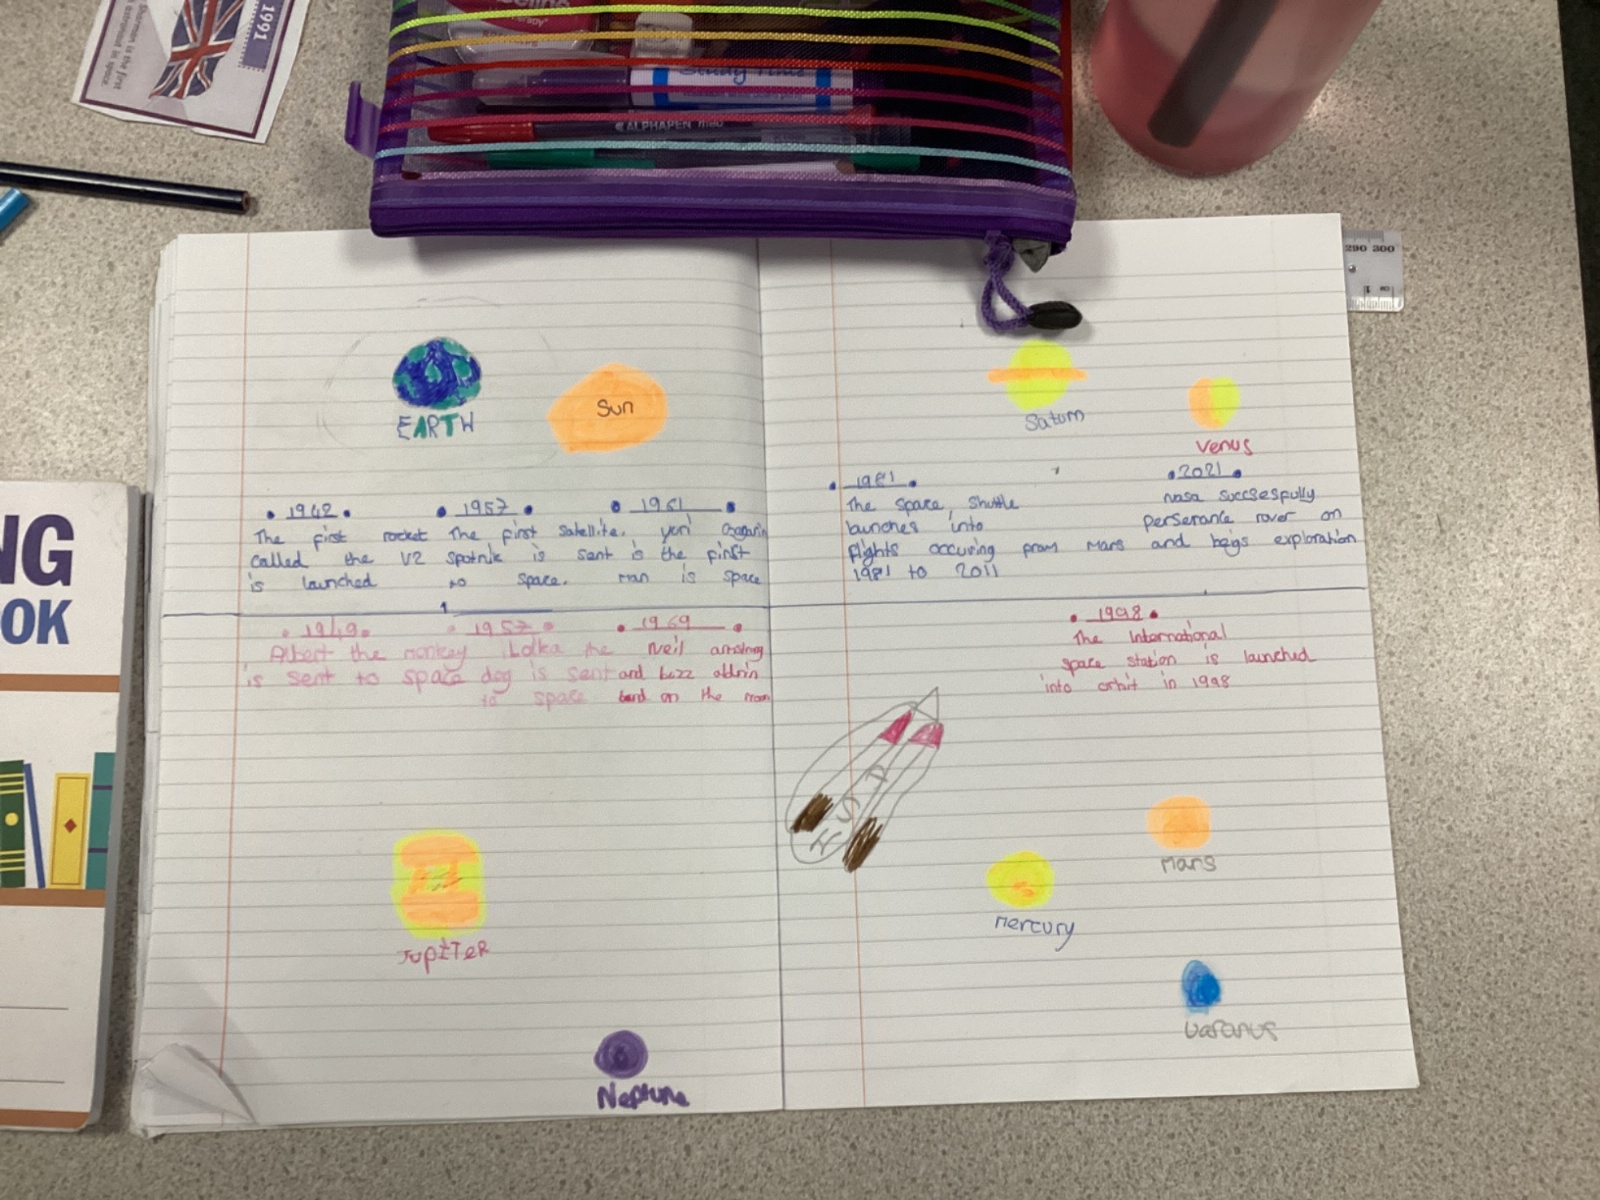 1991
Sharman is the first
NG
OOK
Study Time
ALPHAPEN
290 300
EARTH
Sun
Saturn
Venus
1942
The first rocket
called the V2
is launched
1957
The first satellite.
Spotnik is sent
to space.
1961
yeri
is the first
man is space
1981
The space shuttle
launches into
flights occuring from
1981 to 2011
2021
nasa succsespully
perserance rover on
Mars and beigs exploration
1949
Albert the monkey
is sent to space
1957
Laika the
dog is sent
to space
1969
Neil amstrong
and buzz aldrin
land on the moon
1998
The International
space station is launched
into orbit in 1998
USA
Jupiter
Mars
Mercury
Uaranus
Neptune